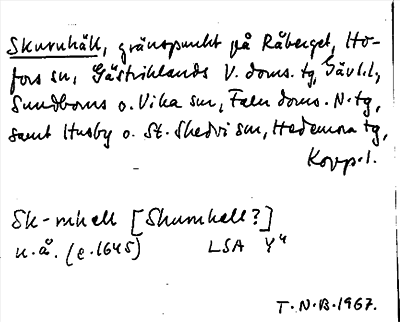 Skuruhäll, gränspunkt på Råberget, Ho-
fors sn, Gästriklands V. doms. tg, Gävl.l,
Sundborns o. Vika snr, Falu doms. N. tg,
samt Husby o. St. Skedvi snr, Hedemora tg,
Kopp.l.
Sk-mhell [Skumhell?]
u.å. (e. 1645) LSA Y4
T.N.B. 1967.